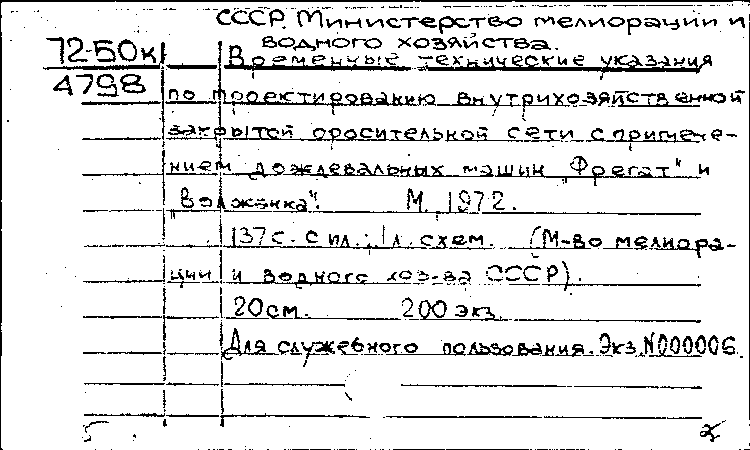 СССР. Министерство мелиорации и
водного хозяйства.
72-50к Временные технические указания
4798
по проектированию внутрихозяйственной
закрытой оросительной сети с примене-
нием дождевальных машин „Фрегат" и
„Волжанка". М., 1972.
137с. с ил.; 1л. схем. (М-во мелиора-
ции и водного хоз-ва СССР).
20см. 200 экз.
Для служебного пользования. Экз. N000006.